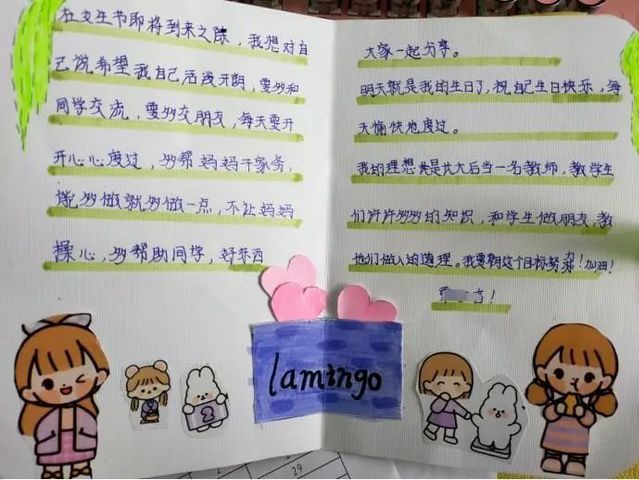 在女生节即将到来之际，我想对自
己说希望我自己活泼开朗，要多和
同学交流，要多交朋友，每天要开
开心心度过，多帮妈妈干家务，
能多做就多做一点，不让妈妈
操心，多帮助同学，好东西
大家一起分享。
明天就是我的生日了，祝自己生日快乐，每
天愉快地度过。
我的理想是长大后当一名教师，教学生
们许许多多的知识，和学生做朋友，教
他们做人的道理。我要朝这个目标努力！加油！
lamingo
2
29